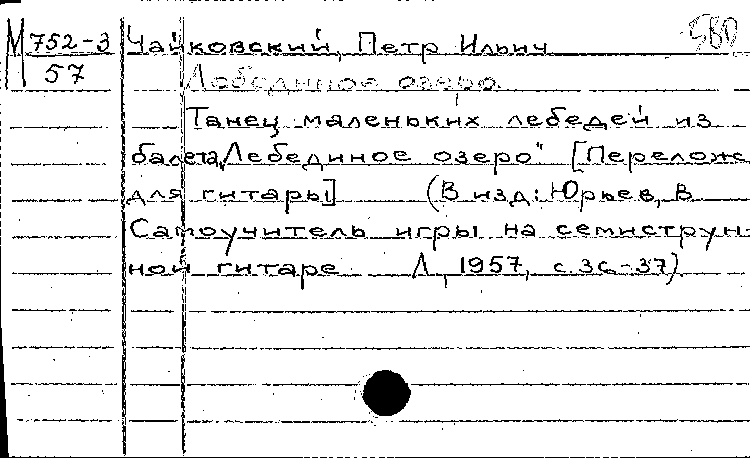 М 752-3
57
580
Чайковский, Петр Ильич
Лебединое озеро
Танец маленьких лебедей из
балета „Лебединое озеро" [Перелож.
для гитары] (В изд: Юрьев, В
Самоучитель игры на семиструн-
ной гитаре Л, 1957, с. 36-37)